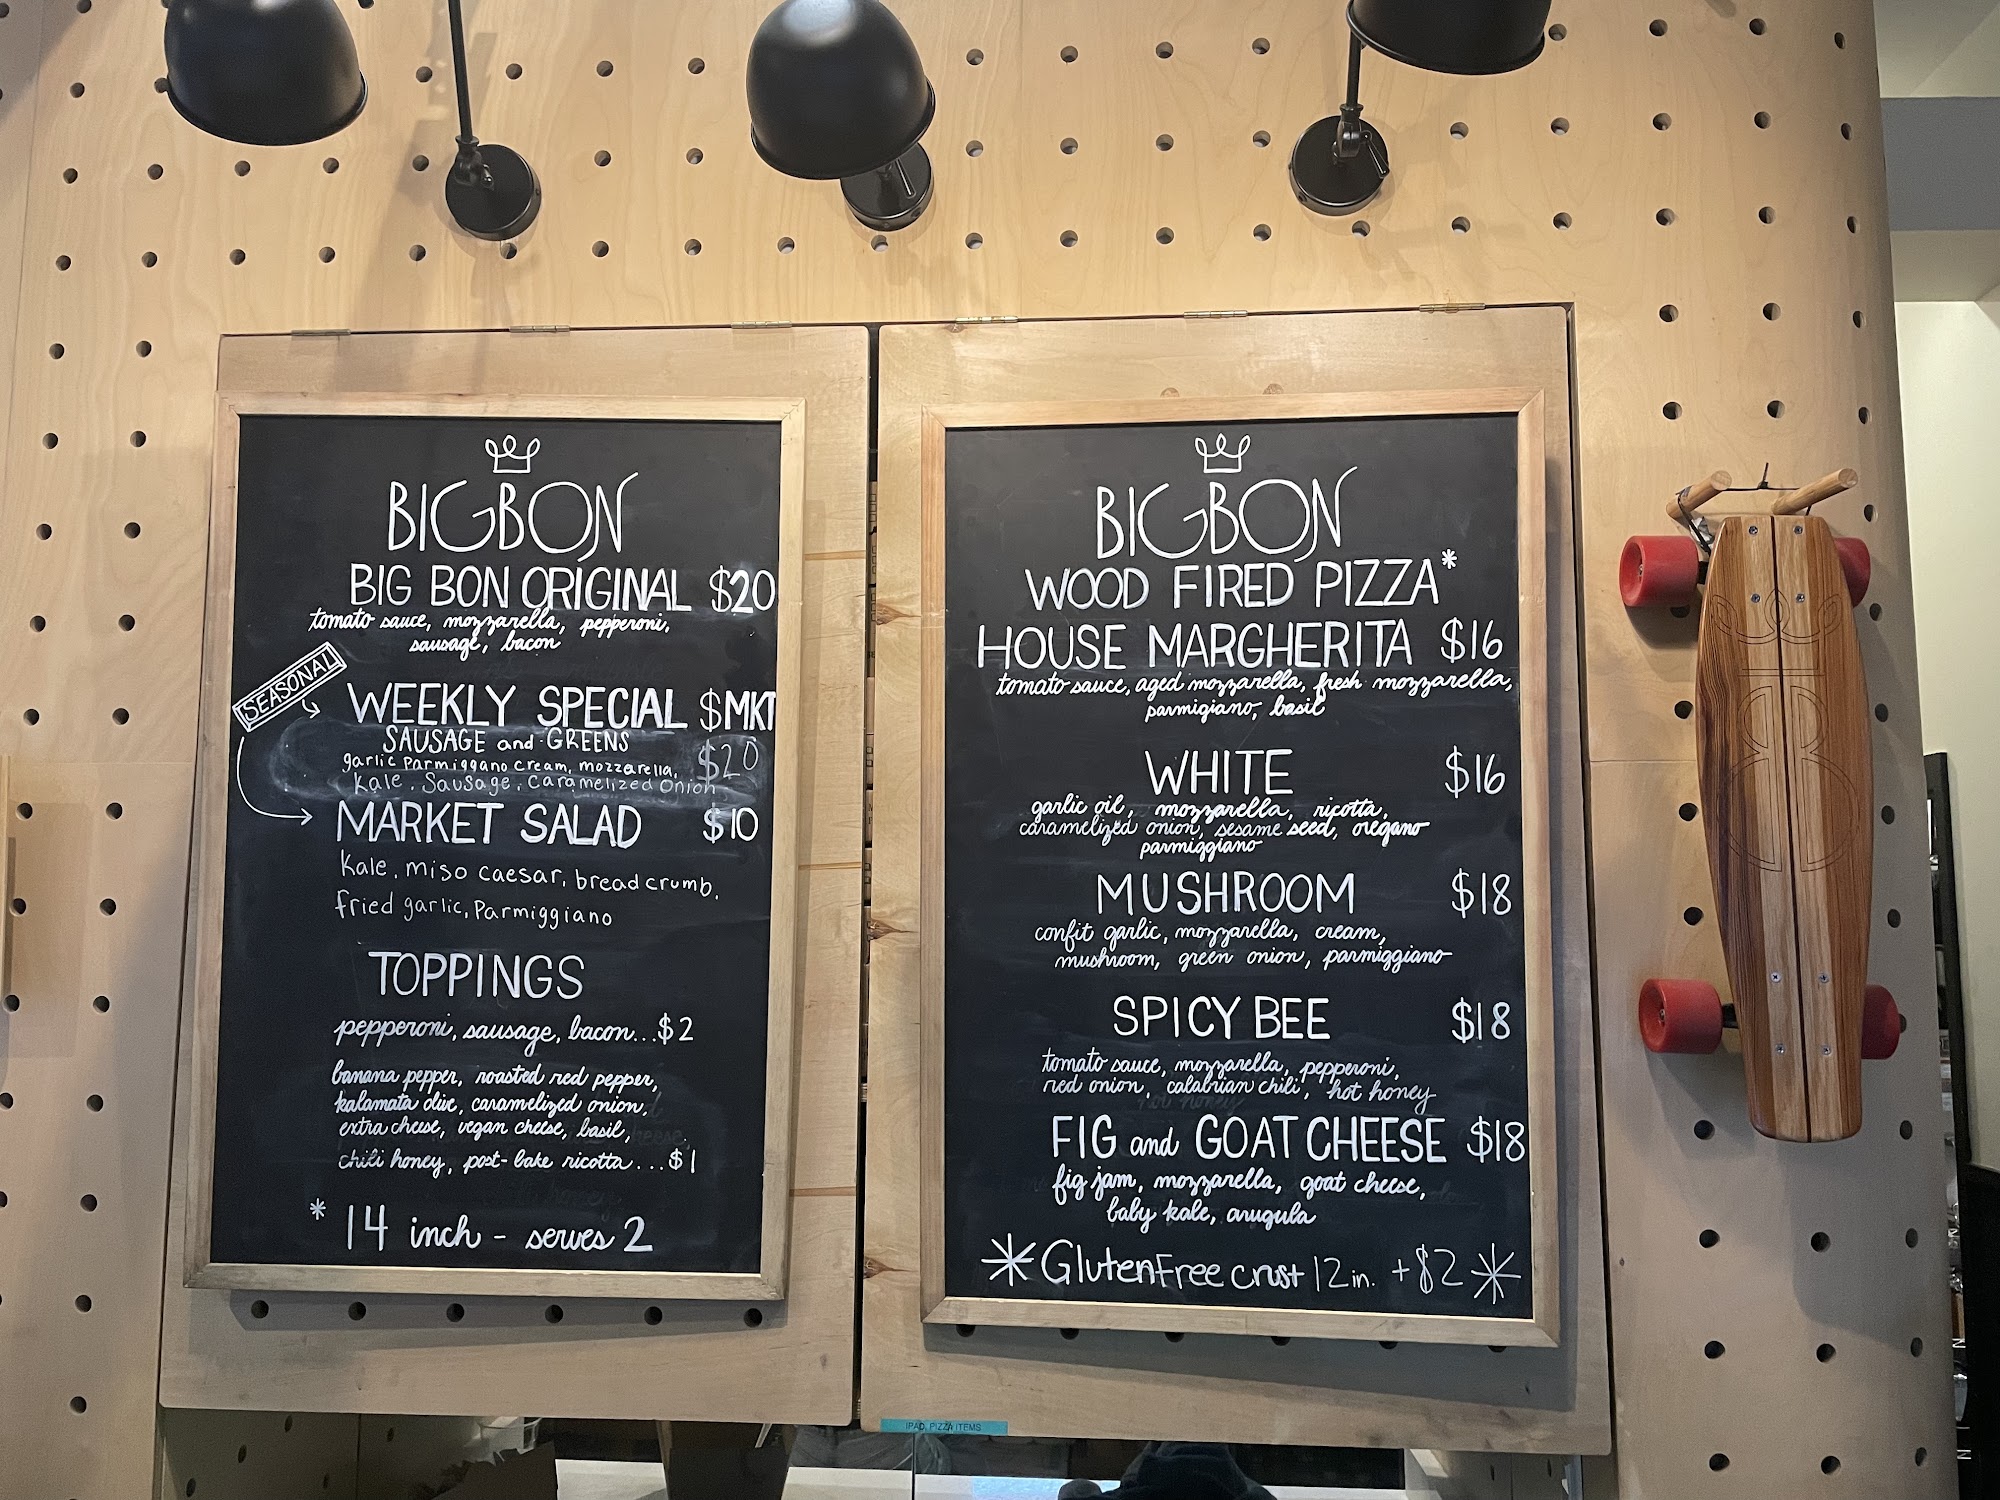 BIGBON
BIG BON ORIGINAL $20
tomato sauce, mozzarella, pepperoni,
sausage, bacon
SEASONAL
WEEKLY SPECIAL $MKT
SAUSAGE and GREENS
garlic Parmiggano cream, mozzarella, $20
Kale, Sausage, Caramelized Onion
MARKET SALAD $10
Kale, miso caesar, bread crumb,
fried garlic, Parmiggiano
TOPPINGS
pepperoni, sausage, bacon...$2
banana pepper, roasted red pepper,
kalamata olive, caramelized onion,
extra cheese, vegan cheese, basil,
chili honey, post-bake ricotta...$1
* 14 inch - serves 2
BIGBON
WOOD FIRED PIZZA*
HOUSE MARGHERITA $16
tomato sauce, aged mozzarella, fresh mozzarella,
parmigiano, basil
WHITE $16
garlic oil, mozzarella, ricotta,
caramelized onion, sesame seed, oregano
parmiggiano
MUSHROOM $18
confit garlic, mozzarella, cream,
mushroom, green onion, parmiggiano
SPICY BEE $18
tomato sauce, mozzarella, pepperoni,
red onion, calabrian chili, hot honey
FIG and GOAT CHEESE $18
fig jam, mozzarella, goat cheese,
baby kale, arugula
*GlutenFree crust 12in. +$2*
IPAD, PIZZA ITEMS